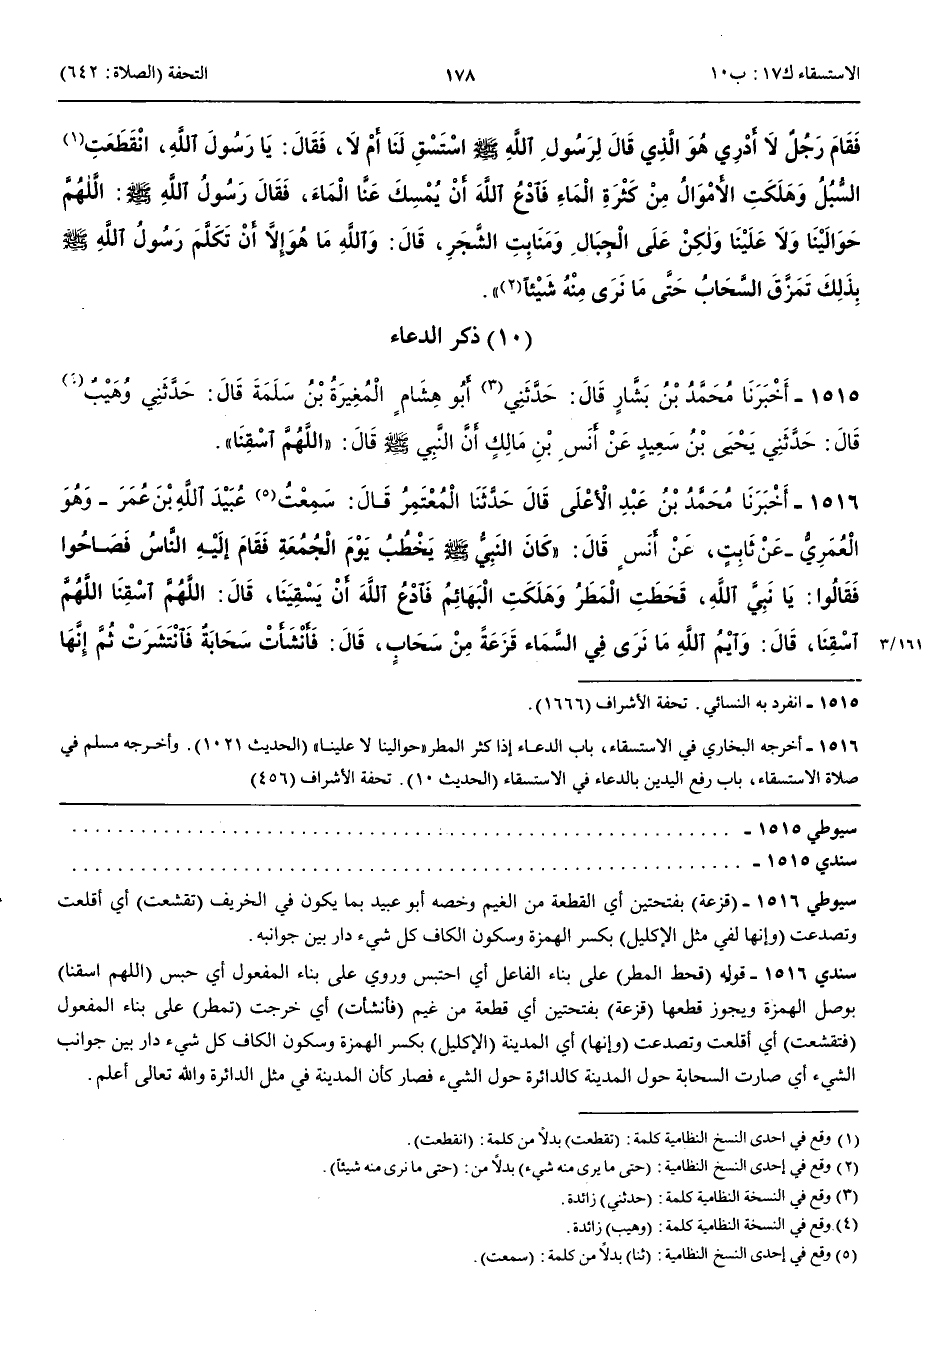 الاستسقاء ك١٧: ب١٠ ١٧٨ التحفة (الصلاة: ٦٤٢)
فَقَامَ رَجُلٌ لَا أَدْرِي هُوَ الَّذِي قَالَ لِرَسُولِ ٱللَّهِ ﷺ اسْتَسْقِ لَنَا أَمْ لَا، فَقَالَ: يَا رَسُولَ ٱللَّهِ، انْقَطَعَتِ(١)
السُّبُلُ وَهَلَكَتِ الأَمْوَالُ مِنْ كَثْرَةِ الْمَاءِ فَٱدْعُ ٱللَّهَ أَنْ يُمْسِكَ عَنَّا الْمَاءَ، فَقَالَ رَسُولُ ٱللَّهِ ﷺ: اللَّهُمَّ
حَوَالَيْنَا وَلَا عَلَيْنَا وَلٰكِنْ عَلَى الْجِبَالِ وَمَنَابِتِ الشَّجَرِ، قَالَ: وَٱللَّهِ مَا هُوَ إِلَّا أَنْ تَكَلَّمَ رَسُولُ ٱللَّهِ ﷺ
بِذٰلِكَ تَمَزَّقَ السَّحَابُ حَتَّى مَا نَرَى مِنْهُ شَيْئاً(٢)».
(١٠) ذكر الدعاء
١٥١٥ ـ أَخْبَرَنَا مُحَمَّدُ بْنُ بَشَّارٍ قَالَ: حَدَّثَنِي(٣) أَبُو هِشَامٍ الْمُغِيرَةُ بْنُ سَلَمَةَ قَالَ: حَدَّثَنِي وُهَيْبٌ(٤)
قَالَ: حَدَّثَنِي يَحْيَى بْنُ سَعِيدٍ عَنْ أَنَسِ بْنِ مَالِكٍ أَنَّ النَّبِي ﷺ قَالَ: «اللَّهُمَّ ٱسْقِنَا».
١٥١٦ ـ أَخْبَرَنَا مُحَمَّدُ بْنُ عَبْدِ الأَعْلَى قَالَ حَدَّثَنَا الْمُعْتَمِرُ قَالَ: سَمِعْتُ(٥) عُبَيْدَ اللَّهِ بْنَ عُمَرَ ـ وَهُوَ
الْعُمَرِيُّ ـ عَنْ ثَابِتٍ، عَنْ أَنَسٍ قَالَ: «كَانَ النَّبِيُّ ﷺ يَخْطُبُ يَوْمَ الْجُمُعَةِ فَقَامَ إِلَيْهِ النَّاسُ فَصَاحُوا
فَقَالُوا: يَا نَبِيَّ اللَّهِ، قَحَطَتِ الْمَطَرُ وَهَلَكَتِ الْبَهَائِمُ فَٱدْعُ ٱللَّهَ أَنْ يَسْقِيَنَا، قَالَ: اللَّهُمَّ ٱسْقِنَا اللَّهُمَّ
ٱسْقِنَا، قَالَ: وَٱيْمُ ٱللَّهِ مَا نَرَى فِي السَّمَاءِ قَزَعَةً مِنْ سَحَابٍ، قَالَ: فَأَنْشَأَتْ سَحَابَةٌ فَٱنْتَشَرَتْ ثُمَّ إِنَّهَا ٣/١٦١
١٥١٥ ـ انفرد به النسائي. تحفة الأشراف (١٦٦٦).
١٥١٦ ـ أخرجه البخاري في الاستسقاء، باب الدعاء إذا كثر المطر «حوالينا لا علينا» (الحديث ١٠٢١). وأخرجه مسلم في
صلاة الاستسقاء، باب رفع اليدين بالدعاء في الاستسقاء (الحديث ١٠). تحفة الأشراف (٤٥٦)
سيوطي ١٥١٥ ـ . . . . . . . . . . . . . . . . . . . . . . . . . . . . . .
سندي ١٥١٥ ـ . . . . . . . . . . . . . . . . . . . . . . . . . . . . . .
سيوطي ١٥١٦ ـ (قزعة) بفتحتين أي القطعة من الغيم وخصه أبو عبيد بما يكون في الخريف (تقشعت) أي أقلعت
وتصدعت (وإنها لفي مثل الإكليل) بكسر الهمزة وسكون الكاف كل شيء دار بين جوانبه.
سندي ١٥١٦ ـ قوله (قحط المطر) على بناء الفاعل أي احتبس وروي على بناء المفعول أي حبس (اللهم اسقنا)
بوصل الهمزة ويجوز قطعها (قزعة) بفتحتين أي قطعة من غيم (فأنشأت) أي خرجت (تمطر) على بناء المفعول
(فتقشعت) أي أقلعت وتصدعت (وإنها) أي المدينة (الإكليل) بكسر الهمزة وسكون الكاف كل شيء دار بين جوانب
الشيء أي صارت السحابة حول المدينة كالدائرة حول الشيء فصار كأن المدينة في مثل الدائرة والله تعالى أعلم.
(١) وقع في احدى النسخ النظامية كلمة: (تقطعت) بدلاً من كلمة: (انقطعت).
(٢) وقع في إحدى النسخ النظامية: (حتى ما يرى منه شيء) بدلاً من: (حتى ما نرى منه شيئاً).
(٣) وقع في النسخة النظامية كلمة: (حدثني) زائدة.
(٤) وقع في النسخة النظامية كلمة: (وهيب) زائدة.
(٥) وقع في إحدى النسخ النظامية: (ثنا) بدلاً من كلمة: (سمعت).